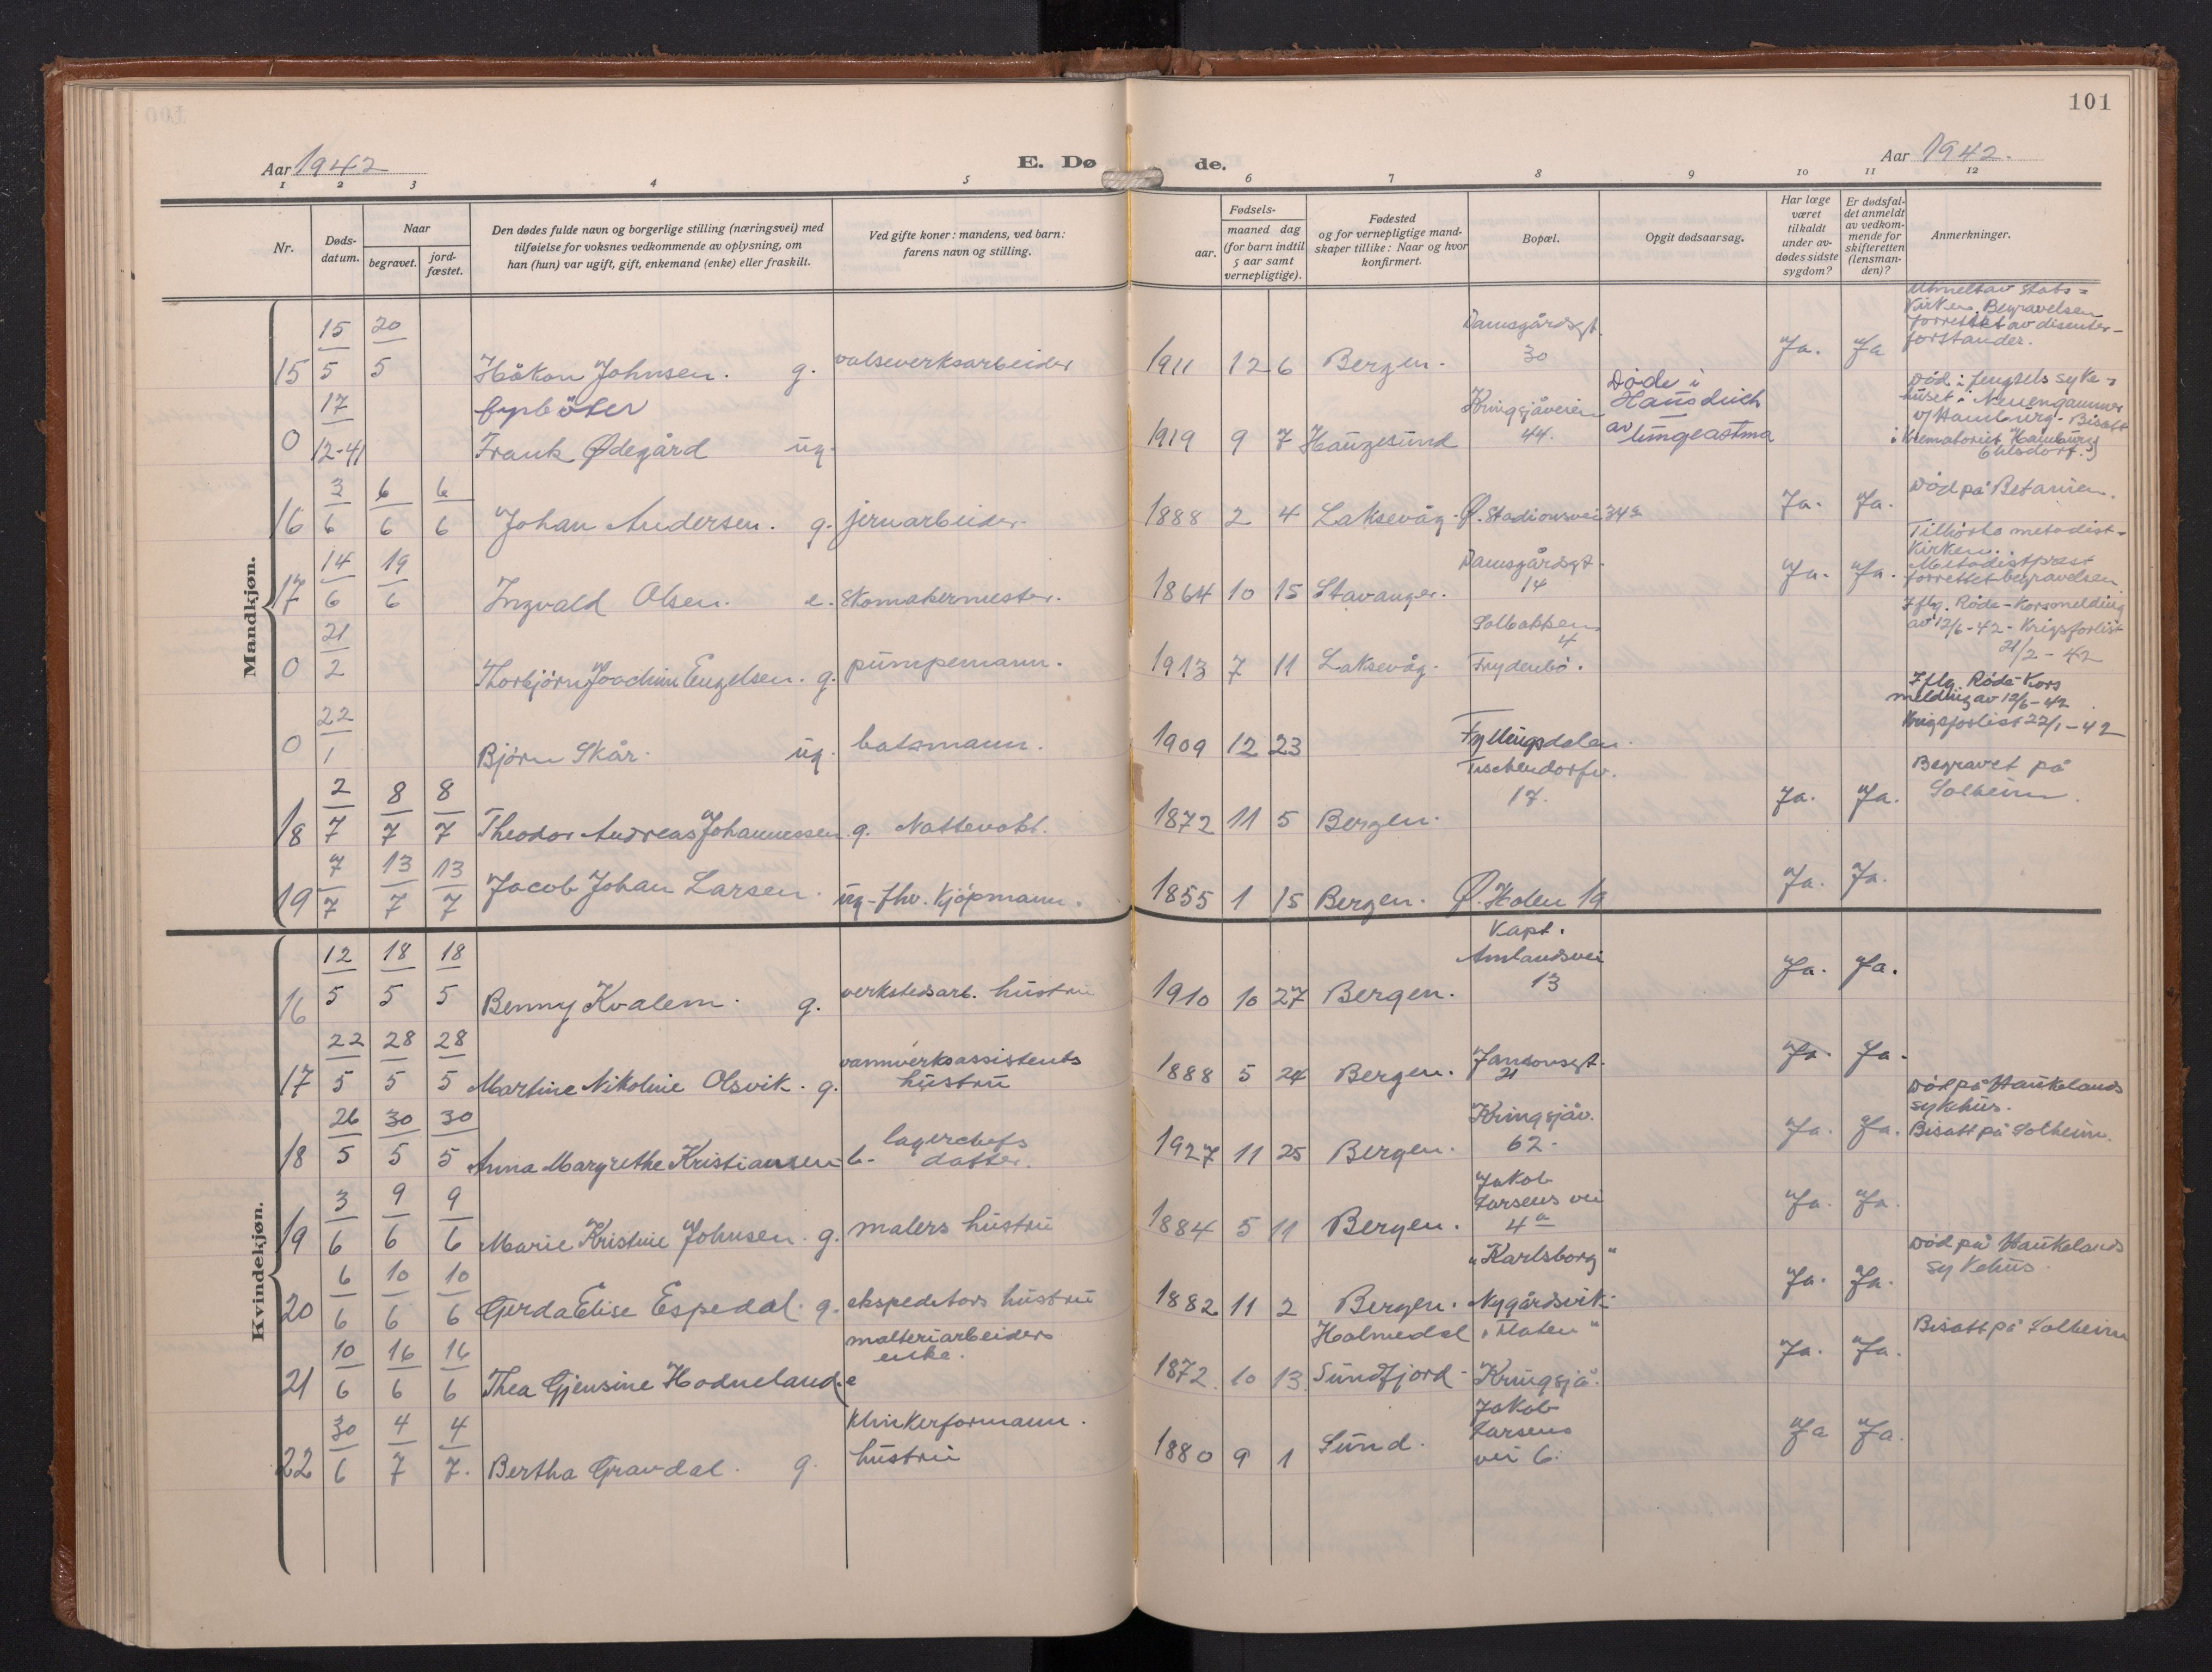 101
Aar 1942
E. Dø de.
Aar 1942.
1 2 3 4 5 6 7 8 9 10 11 12
Nr.
Døds-
datum.
Naar
begravet.
jord-
fæstet.
Den dødes fulde navn og borgerlige stilling (næringsvei) med
tilføielse for voksnes vedkommende av oplysning, om
han (hun) var ugift, gift, enkemand (enke) eller fraskilt.
Ved gifte koner: mandens, ved barn:
farens navn og stilling.
Fødsels-
aar.
maaned dag
(for barn indtil
5 aar samt
vernepligtige).
Fødested
og for vernepligtige mand-
skaper tillike: Naar og hvor
konfirmert.
Bopæl.
Opgit dødsaarsag.
Har læge
været
tilkaldt
under av-
dødes sidste
sygdom?
Er dødsfal-
det anmeldt
av vedkom-
mende for
skifteretten
(lensman-
den)?
Anmerkninger.
Mandkjøn.
15 15/5 20/5 Håkon Johnsen. g. valseverksarbeider 1911 12 6 Bergen. Damsgårdsgt. 30 Ja. Ja
Utmeldt av Stats-
kirken. Begravelsen
forrettet av disenter-
forstander.
0 17/12-41 fyrbøter
Frank Ødegård ug. 1919 9 7 Haugesund Kringsjåveien 44.
Døde i
av lungeastma
Død i fengsels syke-
huset i Neuengammer
v/ Hamburg. Bisatt
i Krematoriet Hamburg
Ohlsdorf.
16 3/6 6/6 6/6 Johan Andersen. g. jernarbeider 1888 2 4 Laksevåg. Ø. Stadionsvei 34a Ja. Ja. Død på Betanien.
17 14/6 19/6 Ingvald Olsen. e. Skomakermester. 1864 10 15 Stavanger. Damsgårdsgt. 14 Ja. Ja.
Tilhørte metodist-
kirken.
Metodistprest
forrettet begravelsen
0 21/2 Thorbjørn Joachim Engelsen. g. pumpemann. 1913 7 11 Laksevåg. Solbakken 4 Frydenbø.
Iflg. Røde-Korsmelding
av 12/6-42 - Krigsforlist
21/2 - 42
0 22/1 Bjørn Skår. ug. batsmann. 1909 12 23 Fyllingsdalen.
Iflg. Røde Kors
melding av 12/6-42
Krigsforlist 22/1-42
18 2/7 8/7 8/7 Theodor Andreas Johannessen g. Nattevakt. 1872 11 5 Bergen. Tischendorfv. 17. Ja. Ja.
Begravet på
Solheim.
19 7/7 13/7 13/7 Jacob Johan Larsen. ug- fhv. Kjøpmann. 1855 1 15 Bergen. Ø. Holen 19 Ja. Ja.
Kvindekjøn.
16 12/5 18/5 18/5 Benny Kvalem. g. verkstedsarb. hustru 1910 10 27 Bergen. Kapt. Amlandsvei 13 Ja. Ja.
17 22/5 28/5 28/5 Martine Nikoline Olsvik. g. vannverksassistents hustru 1888 5 24 Bergen. Jansonsgt. 21 Ja. Ja.
18 26/5 30/5 30/5 Anna Margrethe Kristiansen b. lagerchefs datter. 1927 11 25 Bergen. Kringsjåv. 62. Ja. Ja.
Død på Haukelands
sykehus.
Bisatt på Solheim.
19 3/6 9/6 9/6 Marie Kristine Johnsen. g. malers hustru 1884 5 11 Bergen. Jakob Larsens vei 4a Ja. Ja.
20 6/6 10/6 10/6 Gerda Elise Espedal. g. ekspeditørs hustru 1882 11 2 Bergen. "Karlsborg" Nygårdsvik. Ja. Ja.
Død på Haukelands
sykehus.
21 10/6 16/6 16/6 Thea Gjensine Hodneland. e malteriarbeiders enke. 1872. 10 13. Holmedal Sundfjord "Flaten" Kringsjå. Ja. Ja. Bisatt på Solheim
22 30/6 4/7 4/7. Bertha Gravdal. g. Klinkerformann. hustru 1880 9 1 Sund. Jakob Larsens vei 6. Ja Ja.